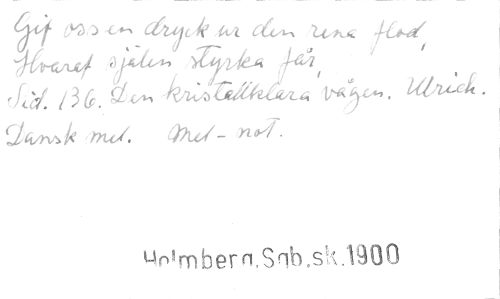 Gif oss en dryck ur den rena flod,
Hvaraf själen styrka får,
Sid. 136. Den kristallklara vågen. Ulrich.
Dansk mel. Mel-not.
Holmberg, Sgb, sk. 1900